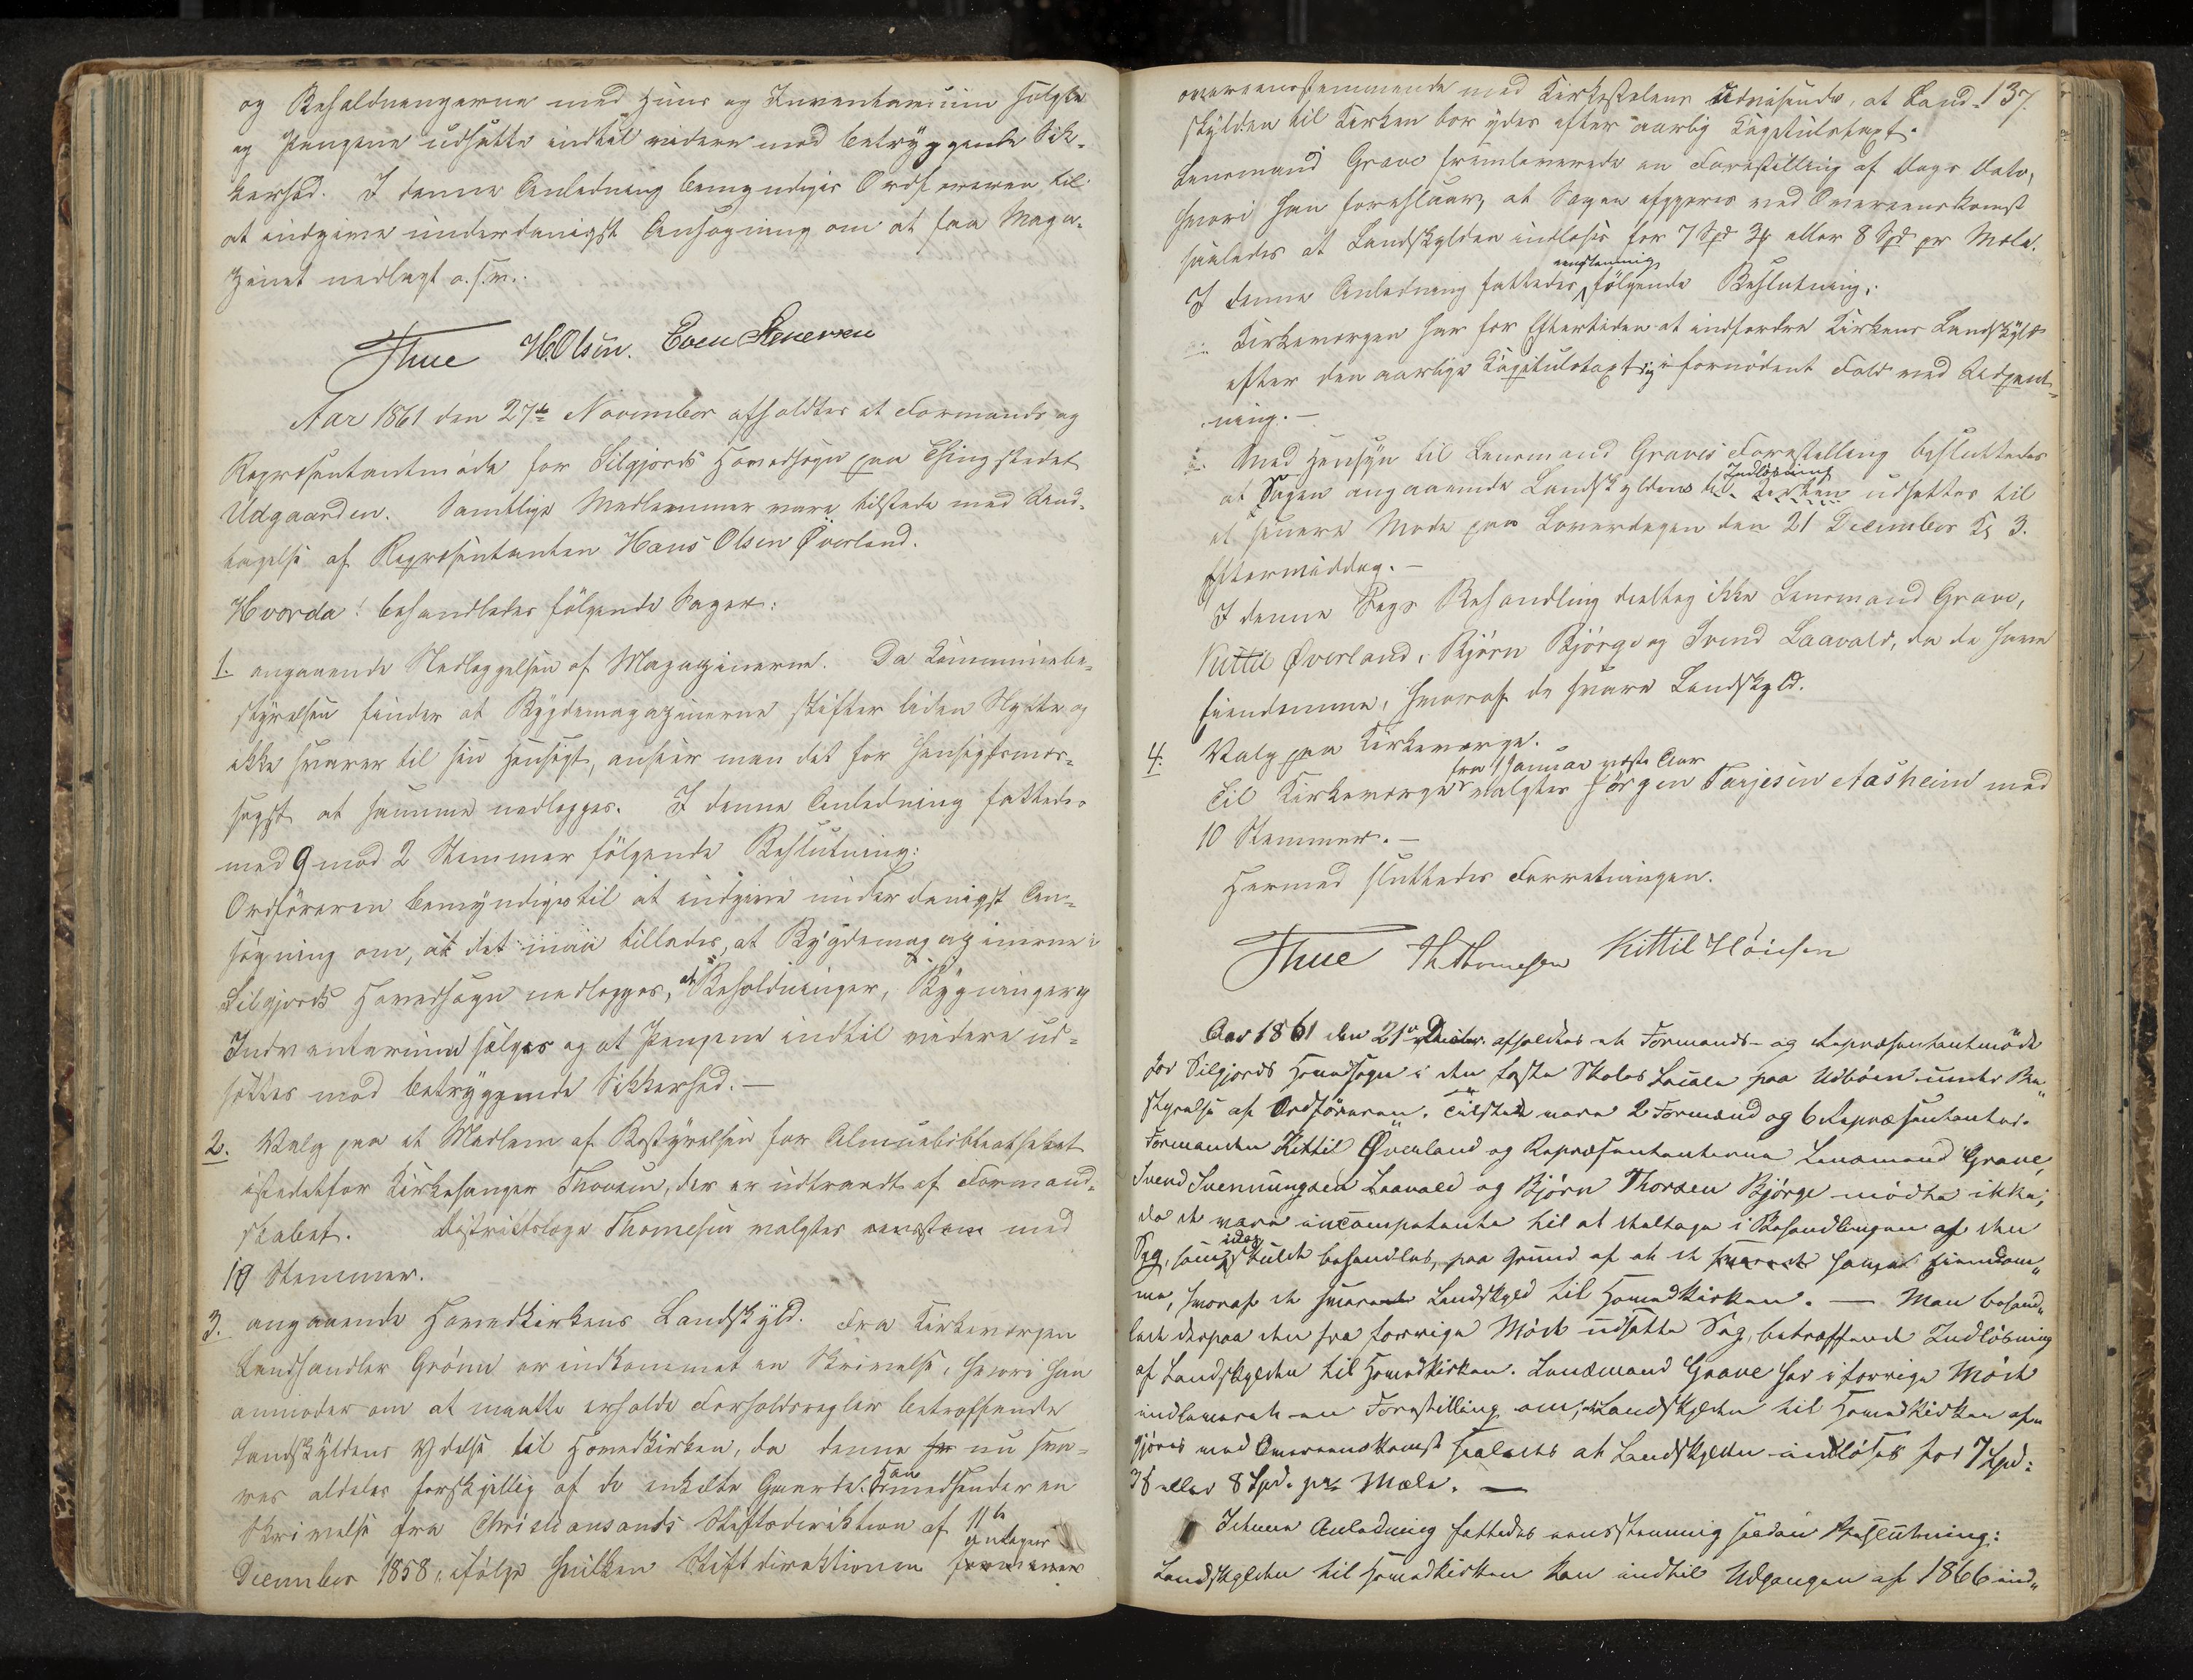 og Beholdningerne med Huus og Inventarium sælges
og Pengene udsættes indtil videre mod betryggende Sik-
kerhed. I denne Anledning bemyndiges Ordføreren til
at indgive underdanigst Ansøgning om at faa Maga-
zinet nedlagt o.s.v.
Thue H. Olsen. Even Stenersen
Aar 1861 den 27de November afholdtes et Formands og
Repræsentantmøde for Silgjords Hovedsogn paa Thingstedet
Udgaarden. Samtlige Medlemmer vare tilstede med Und-
tagelse af Repræsentanten Hans Olsen Øverland.
Hvorda! behandledes følgende Sager:
1. angaaende Nedlæggelsen af Magazinerne. Da Kommunebe-
styrelsen finder at Bygdemagazinerne stifter liden Nytte og
ikke svarer til sin Hensigt, anseer man det for hensigtsmæs-
sigst at samme nedlægges. I denne Anledning fattedes
med 9 mod 2 Stemmer følgende Beslutning:
Ordføreren bemyndiges til at indgive underdanigst An-
søgning om, at det maa tillades, at Bygdemagazinerne i
Silgjords Hovedsogn nedlægges, at Beholdninger, Bygninger og
Inventarium sælges og at Pengene indtil videre ud-
sættes mod betryggende Sikkerhed. —
2. Valg paa et Medlem af Bestyrelsen for Almuebibliotheket
istedetfor Kirkesanger Thorsen, der er udtraadt af Formand-
skabet. Distriktslæge Thomesen valgtes eenstem med
10 Stemmer.
3. angaaende Hovedkirkens Landskyld. Fra Kirkeværgen
Landhandler Grønn er indkommet en Skrivelse, hvori han
anmoder om at maatte erholde Forholdsregler betreffende
Landskyldens Ydelse til Hovedkirken, da denne for nu sva-
res aldeles forskjellig af de enkelte Gaarde. Han medsender en
Skrivelse fra Christiansands Stiftsdirektion af 11te
antager
December 1858, ifølge hvilken Stiftdirektionen formener
137.
overeensstemmende med Kirkestolens Udvisende, at Land-
skylden til Kirken bør ydes efter aarlig Kapitulstaxt.
Lensmand Grave fremleverede en Forestilling af Dags Dato,
hvori han foreslaar, at Sagen afgjøres ved Overeenskomst
saaledes at Landskylden indløses for 7 Spd 3 eller 8 Spd pr Mæle.
eenstemmig
I denne Anledning fattedes følgende Beslutning:
Kirkeværgen har for Eftertiden at indfordre Kirkens Landskyld
efter den aarlige Kapitulstaxt, i fornødent Fald ved Udpant-
ning. —
Med Hensyn til Lensmand Graves Forestilling besluttedes
Indløsning
at Sagen angaaende Landskyldens til Kirken udsættes til
et senere Møde paa Løverdagen den 21 December Kl 3.
Eftermiddag. —
I denne Sags Behandling deeltog ikke Lensmand Grave,
Kittil Øverland, Bjørn Bjørge og Svend Laavald, da de have
Eiendomme, hvoraf de svare Landskyld.
4. Valg paa Kirkeværge.
fra 1 Januar næste Aar
Til Kirkeværge valgtes Jørgen Tarjesen Aasheim med
10 Stemmer. —
Hermed sluttedes Forretningen.
Thue Th Thomesen Kittil Høiesen
Aar 1861 den 21de Decbr. afholdtes et Formands- og Repræsentantmøde
for Silgjords Hovedsogn i den faste Skoles Locale paa Udbøen under Be-
styrelse af Ordføreren. Tilstede vare 2 Formænd og 6 Repræsentanter.
Formanden Kittil Øverland og Repræsentanterne Lensmand Grave,
Svend Svennungsen Laavald og Bjørn Thorsen Bjørge mødte ikke,
da de vare incompetente til at deeltage i Behandlingen af den
idag
Sag, som skulde behandles, paa Grund af at de svarede have Eiendom-
me, hvoraf de svarede Landskyld til Hovedkirken. — Man behand-
lede derpaa den fra forrige Møde udsatte Sag, betræffende Indløsning
af Landskylden til Hovedkirken. Lensmand Grave har i forrige Møde
indleveret en Forestilling om, at Landskylden til Hovedkirken af-
gjøres med Overeenskomst saaledes at Landskylden indløses for 7 Spd:
3 eller 8 Spd. pr. Mæle. —
I denne Anledning fattedes eensstemmig saadan Beslutning:
Landskylden til Hovedkirken kan indtil Udgangen af 1866 ind-